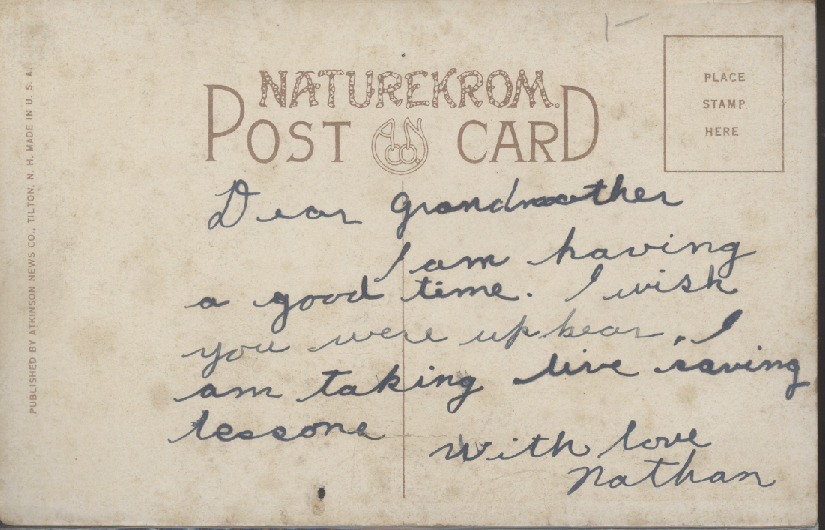 1-
NATUREKROM
POST CARD
ANCO
PLACE
STAMP
HERE
PUBLISHED BY ATKINSON NEWS CO., TILTON, N. H. MADE IN U. S. A.
Dear Grandmother
I am having
a good time. I wish
you were up hear. I
am taking live saving
lessons
with love
Nathan